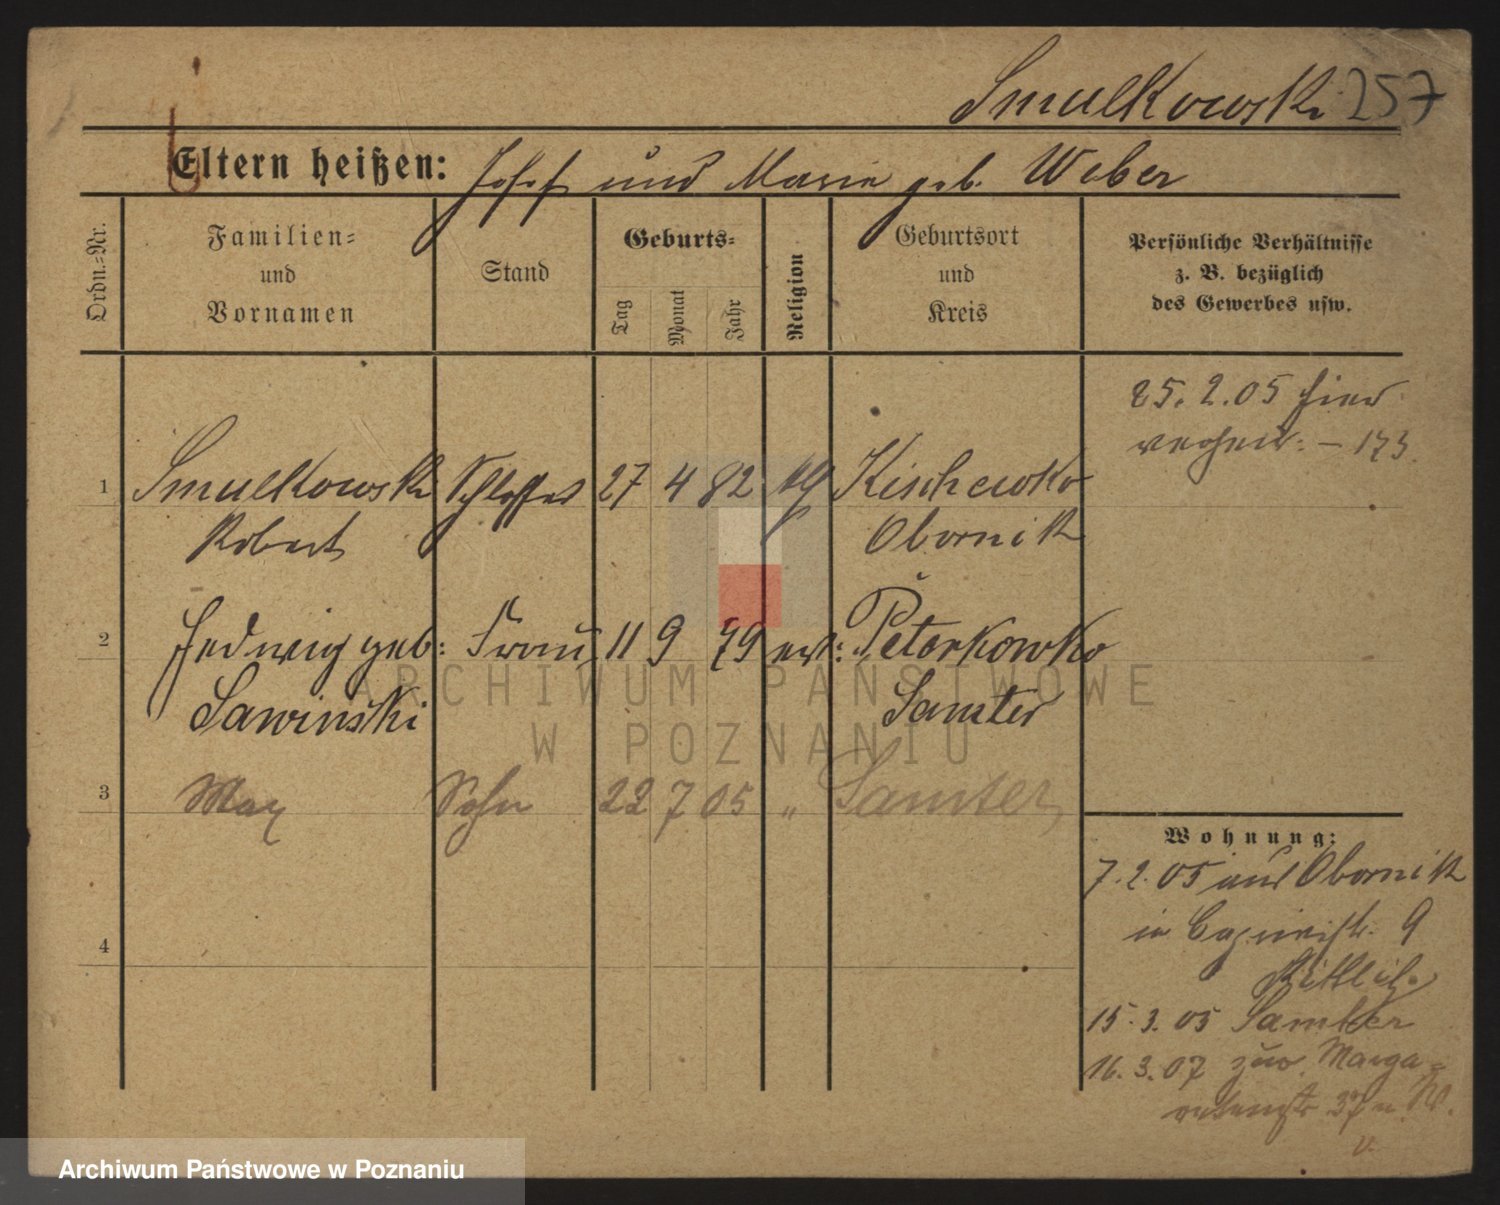 Smulkowski 257
Eltern heißen: Josef und Marie geb. Weber
Ordn.-Nr.
Familien-
und
Vornamen
Stand
Geburts-
Tag
Monat
Jahr
Religion
Geburtsort
und
Kreis
Persönliche Verhältnisse
z. B. bezüglich
des Gewerbes usw.
25. 2. 05 hier
verheir: – 173.
1 Smulkowski Schlosser 27 4 82 Kischewko
Robert Obornik
2 Hedwig geb: Frau 11 9 79 Peterkowko
Sawinski Samter
3 Max Sohn 22 7 05 " Samter
4
Wohnung:
7. 2. 05 aus Obornik
in 9
15. 3. 05 Samter
16. 3. 07 Marga-
retenstr 37
ARCHIWUM PAŃSTWOWE
W POZNANIU
Archiwum Państwowe w Poznaniu